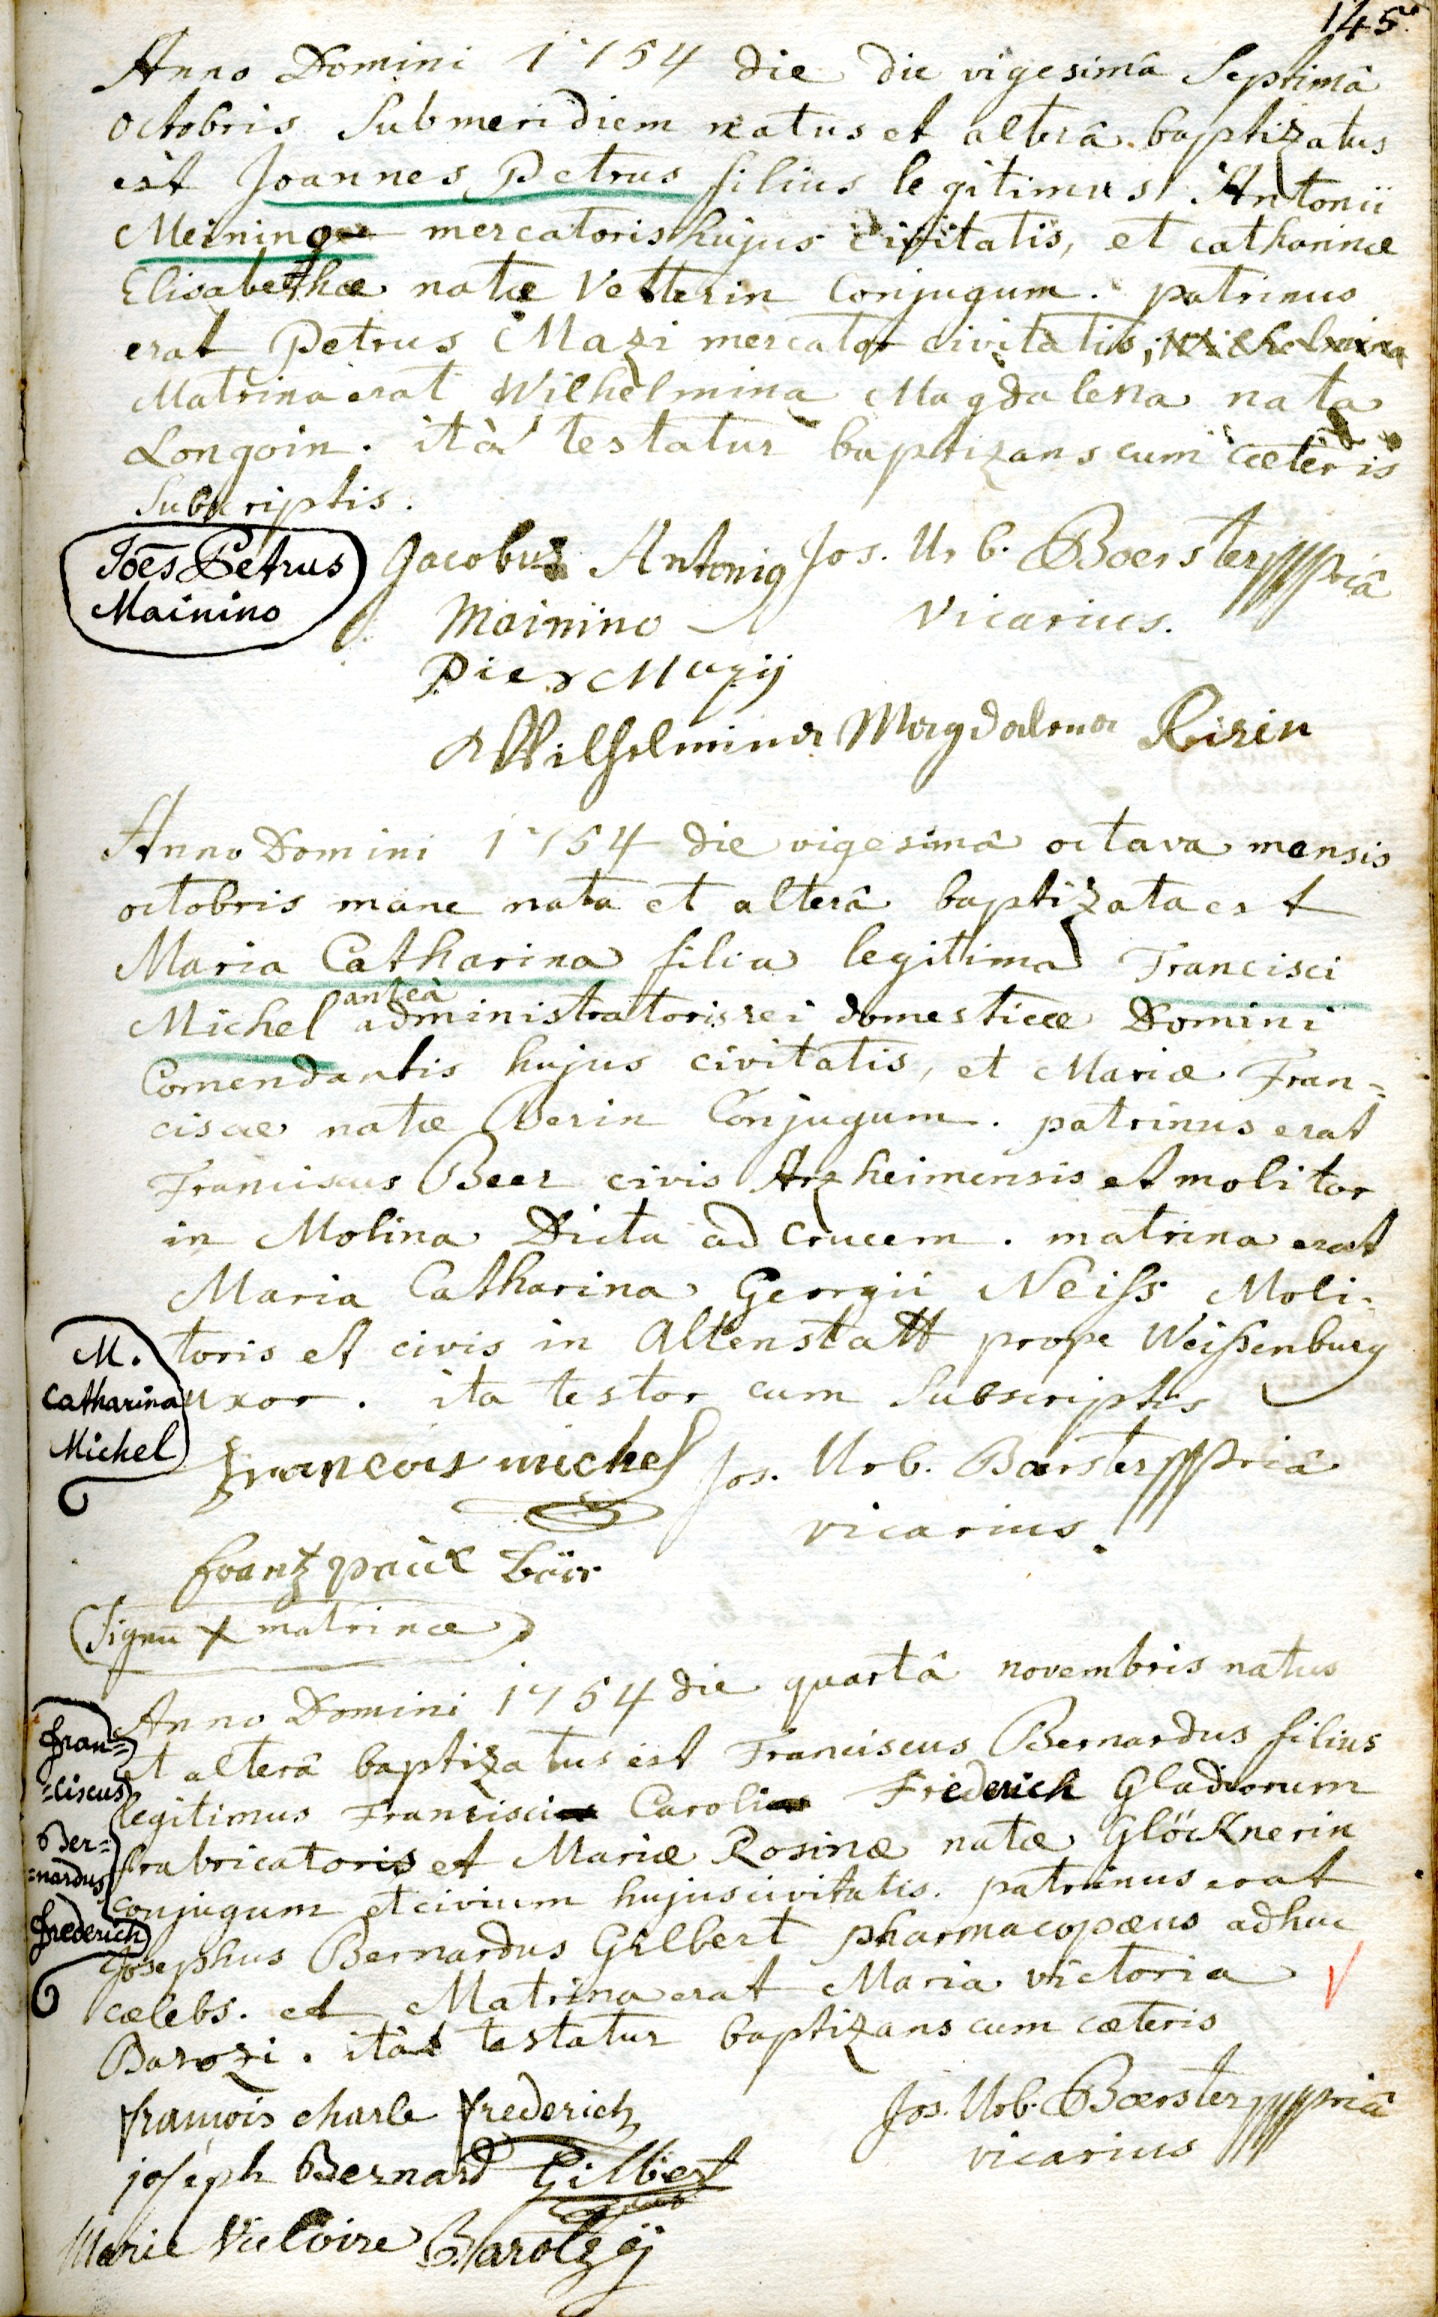 145.
Anno Domini 1754 die die vigesimâ Septimâ
octobris Submeridiem natus et alterâ baptizatus
est Joannes Petrus filius legitimus Antonii
Meinino mercatoris hujus civitatis, et catharinæ
Elisabethæ natæ Vetterin Conjugum. patrinus
erat Petrus Mazi mercator civitatis,
Matrina erat Wilhelmina Magdalena nata
Longoin. ità testatur baptizans cum cæteris
Subscriptis.
Joēs Petrus
Mainino
Jacobus Antonig Jos. Urb. Boerster ppriâ
Mainino vicarius.
Pier Mazij
Wilhelmina Magdalena Risin
Anno Domini 1754 die vigesimâ octava mensis
octobris mane nata et alterâ baptizata est
Maria Catharina filia legitima Francisci
Michel anteà administratoris rei domesticæ Domini
Comendantis hujus civitatis, et Mariæ Fran=
ciscæ natæ Berin Conjugum. patrinus erat
Franciscus Beer civis Arzheimensis et molitor
in Molina Dicta ad Crucem. matrina erat
Maria Catharina Georgii Neiss Moli-
toris et civis in Altenstatt prope Weissenburg
uxor. ita testor cum Subscriptis
M.
Catharina
Michel
francois michel Jos. Urb. Boerster ppriâ
vicarius.
frantz paul bär
(Signū x matrinæ)
Anno Domini 1754 die quartâ novembris natus
et alterâ baptizatus est Franciscus Bernardus filius
legitimus Francisci Caroli Friederich Gladiorum
fabricatoris et Mariæ Rosinæ natæ Glöcknerin
conjugum et civium hujus civitatis. patrinus erat
Josephus Bernardus Gilbert pharmacopæus adhuc
cælebs. et Matrina erat Maria victoria
Barozi. ità testatur baptizans cum cæteris
Fran=
=ciscus
Ber=
=nardus
frederich
françois charle frederich Jos. Urb. Boerster ppriâ
joséph Bernard Gilbert vicarius
Marie Victoire Barotzÿ